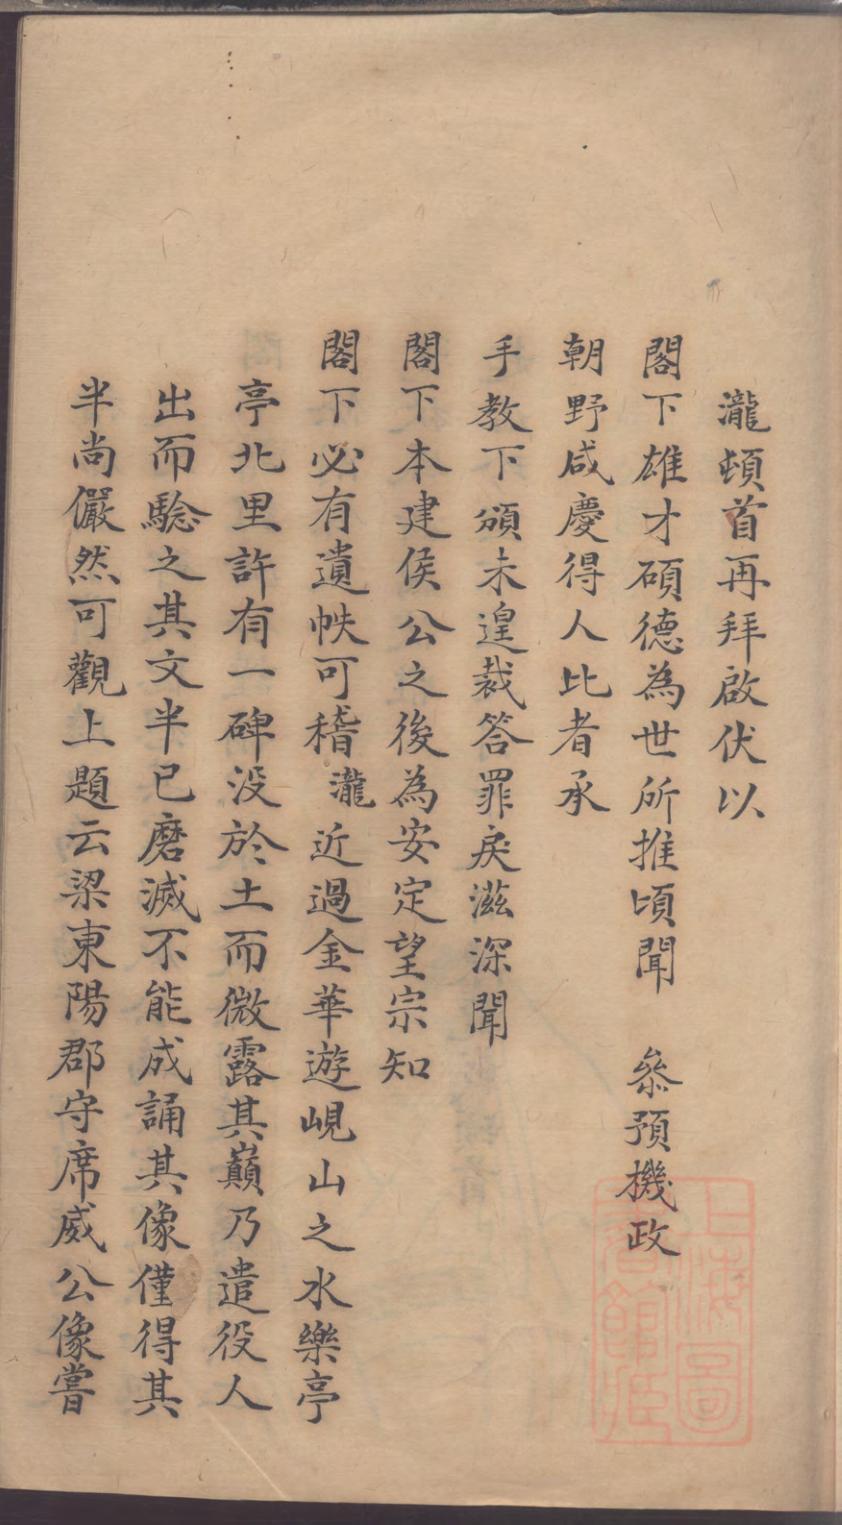 瀧頓首再拜啟伏以
閣下雄才碩德為世所推頃聞　叅預機政
朝野咸慶得人比者承
手教下頒未遑裁答罪戾滋深聞
閣下本建侯公之後為安定望宗知
閣下必有遺帙可稽瀧近過金華遊峴山之水樂亭
亭北里許有一碑没於土而微露其巔乃遣役人
出而騐之其文半已磨滅不能成誦其像僅得其
半尚儼然可觀上題云梁東陽郡守席威公像嘗
上海圖
書館藏